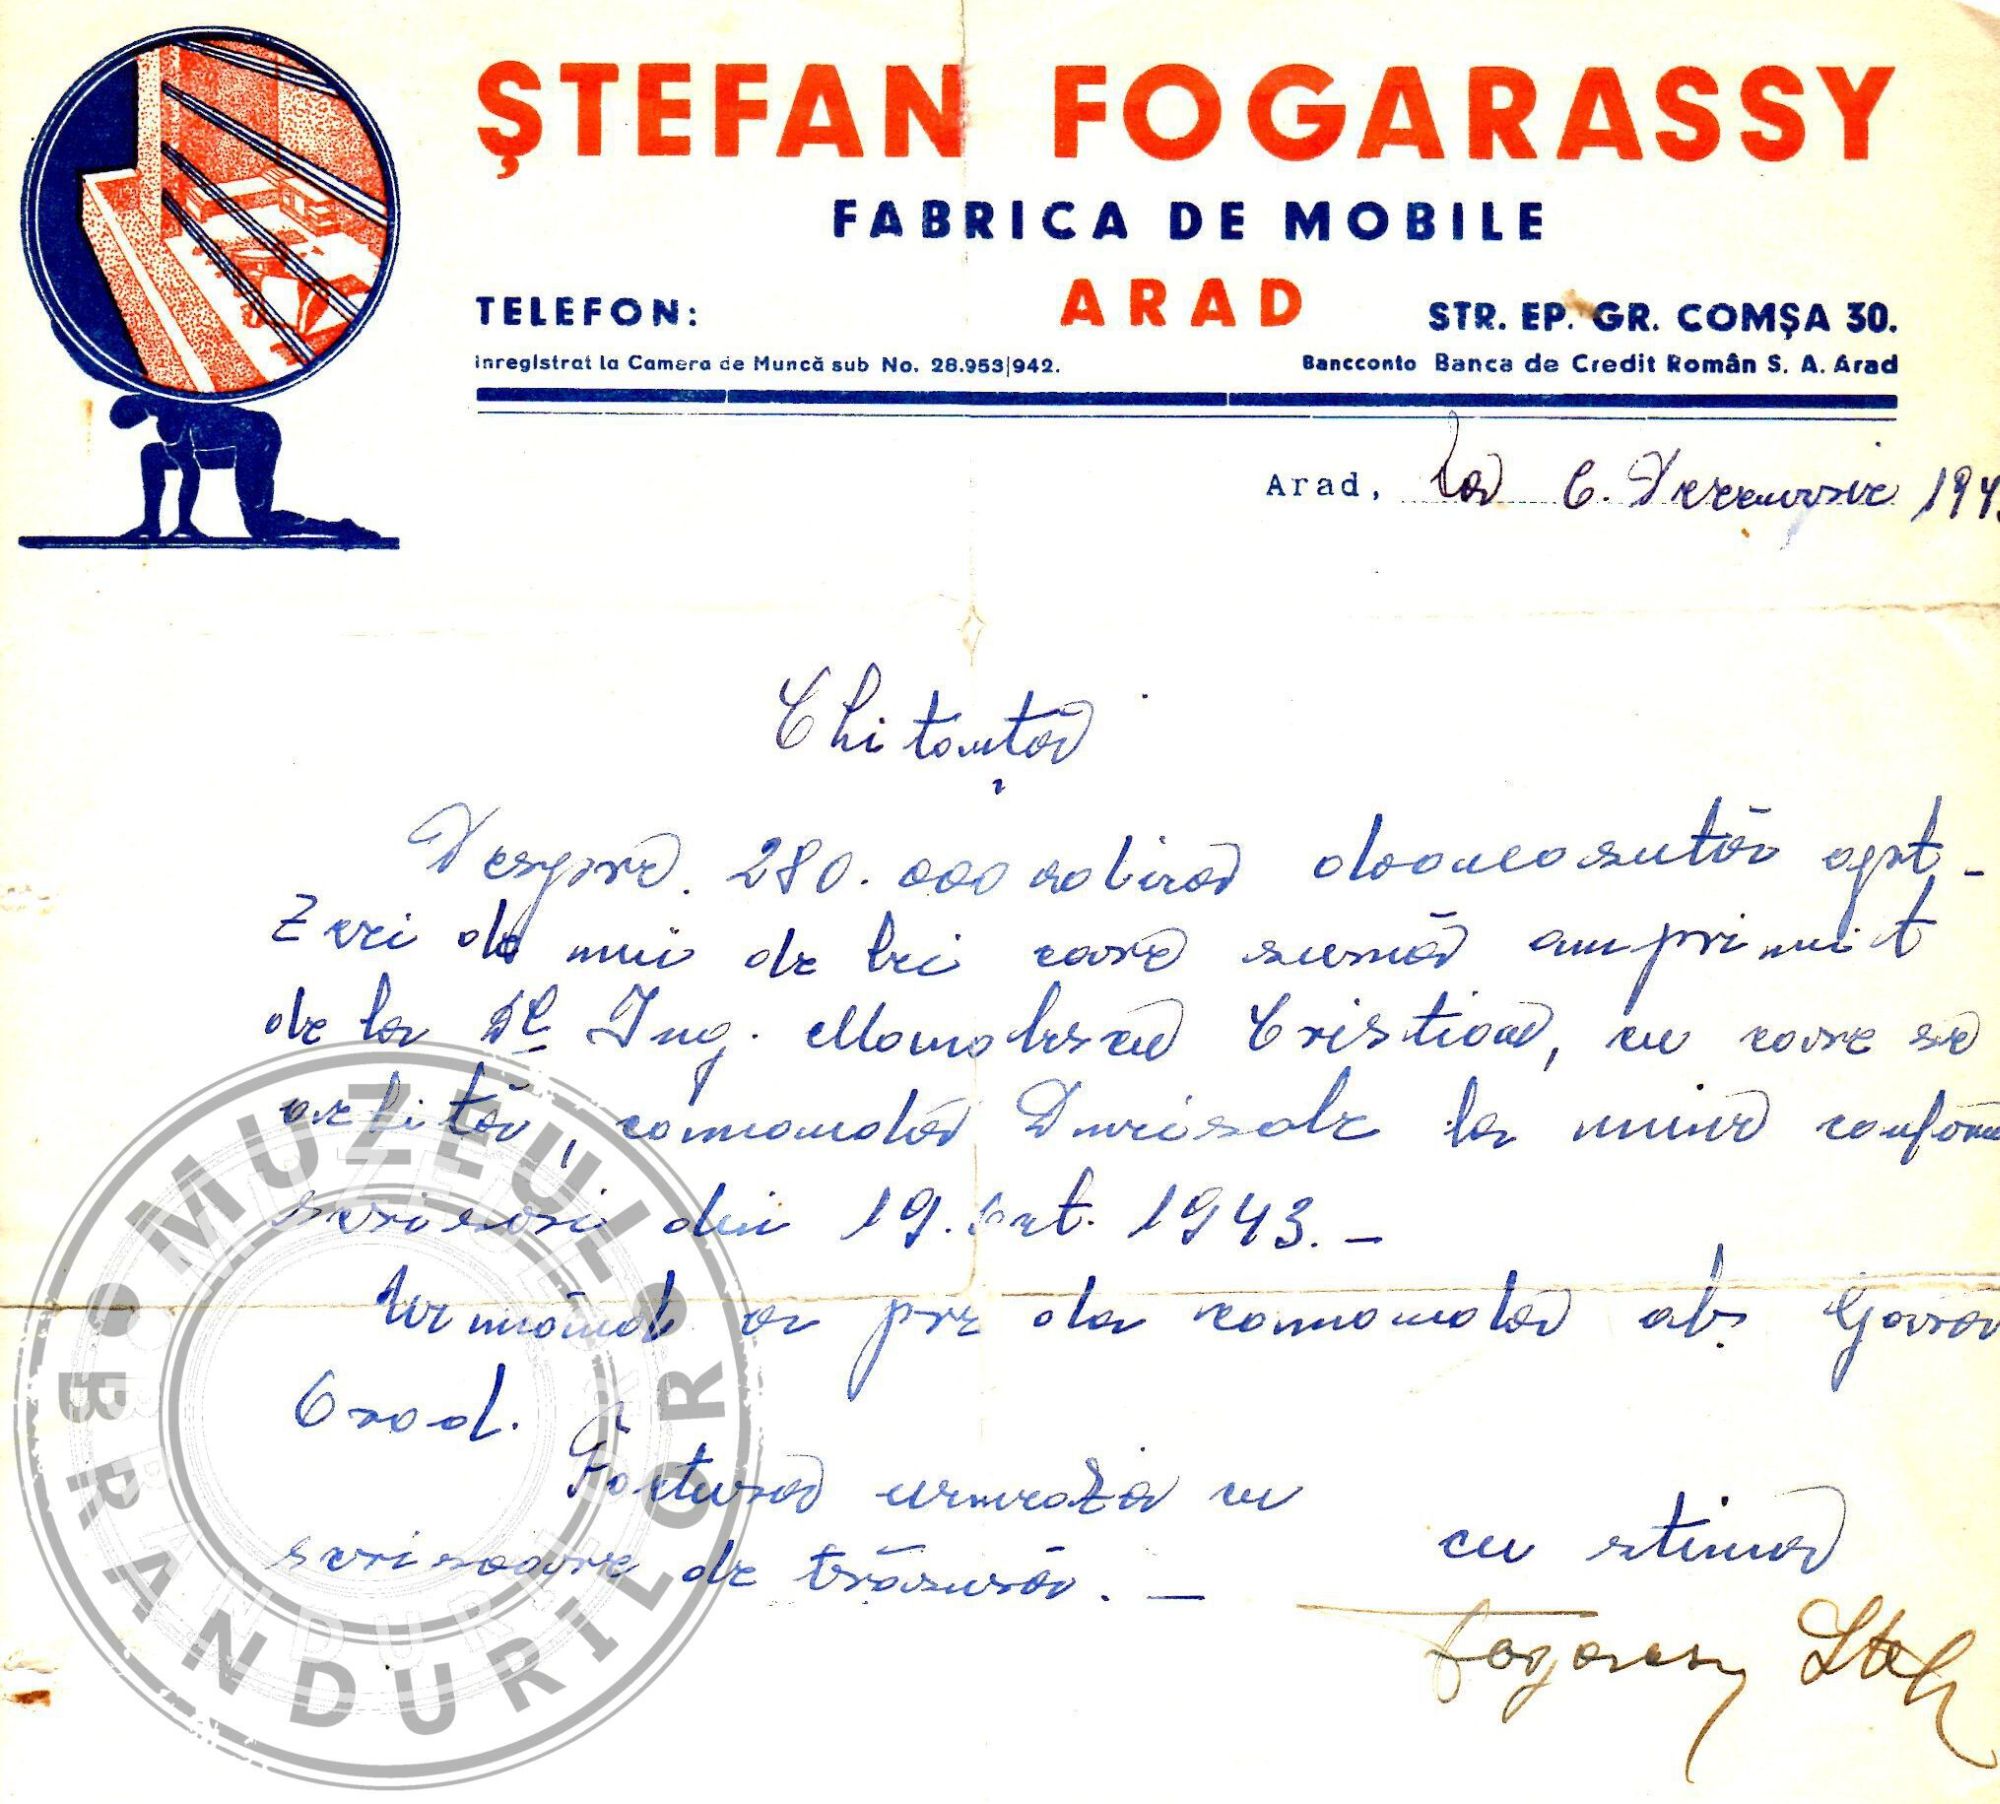 ŞTEFAN FOGARASSY
FABRICA DE MOBILE
ARAD
TELEFON:
STR. EP. GR. COMŞA 30.
inregistrat la Camera de Muncă sub No. 28.953|942.
Bancconto Banca de Credit Român S. A. Arad
Arad, la 6. Decemvrie 194
Chitanță
Despre 280.000 adică douăsută opt-
zeci de mii de lei care sumă am primit
de la Dl Ing. Manolescu Cristian, cu care se
achită, comanda Durisole la mine conform
scrisori din 19. oct. 1943. –
Urmând a pre da comanda abs. Gara
Arad.
Factura urmează cu
scrisoare de trăsură. –
cu stimă
Fogarassy Stef
MUZEUL
BRANDURILOR